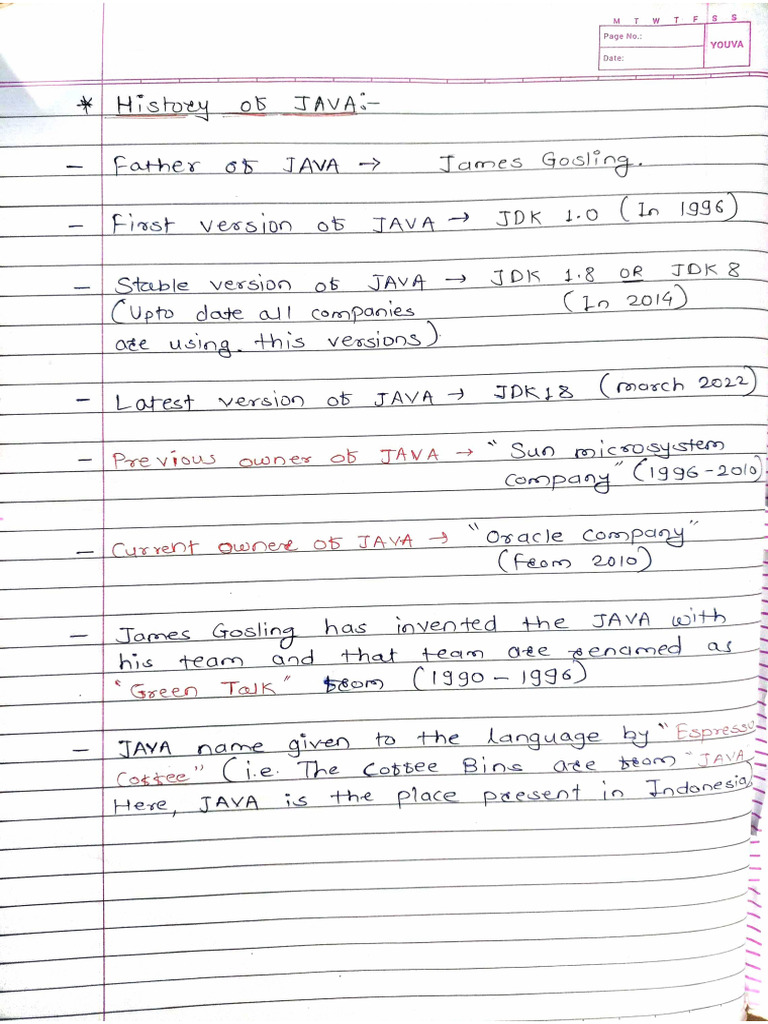 M T W T F S S
Page No.:
YOUVA
Date:
* History of JAVA:-
- Father of JAVA → James Gosling.
- First version of JAVA → JDK 1.0 (In 1996)
- Stable version of JAVA → JDK 1.8 OR JDK 8
(Upto date all companies (In 2014)
are using this versions)
- Latest version of JAVA → JDK18 (march 2022)
- Previous owner of JAVA → "Sun microsystem
company" (1996-2010)
- Current owner of JAVA → "Oracle company"
(from 2010)
- James Gosling has invented the JAVA with
his team and that team are renamed as
"Green Talk" from (1990 - 1996)
- JAVA name given to the language by "Espresso
Coffee" (i.e. The Coffee Bins are from "JAVA
Here, JAVA is the place present in Indonesia)